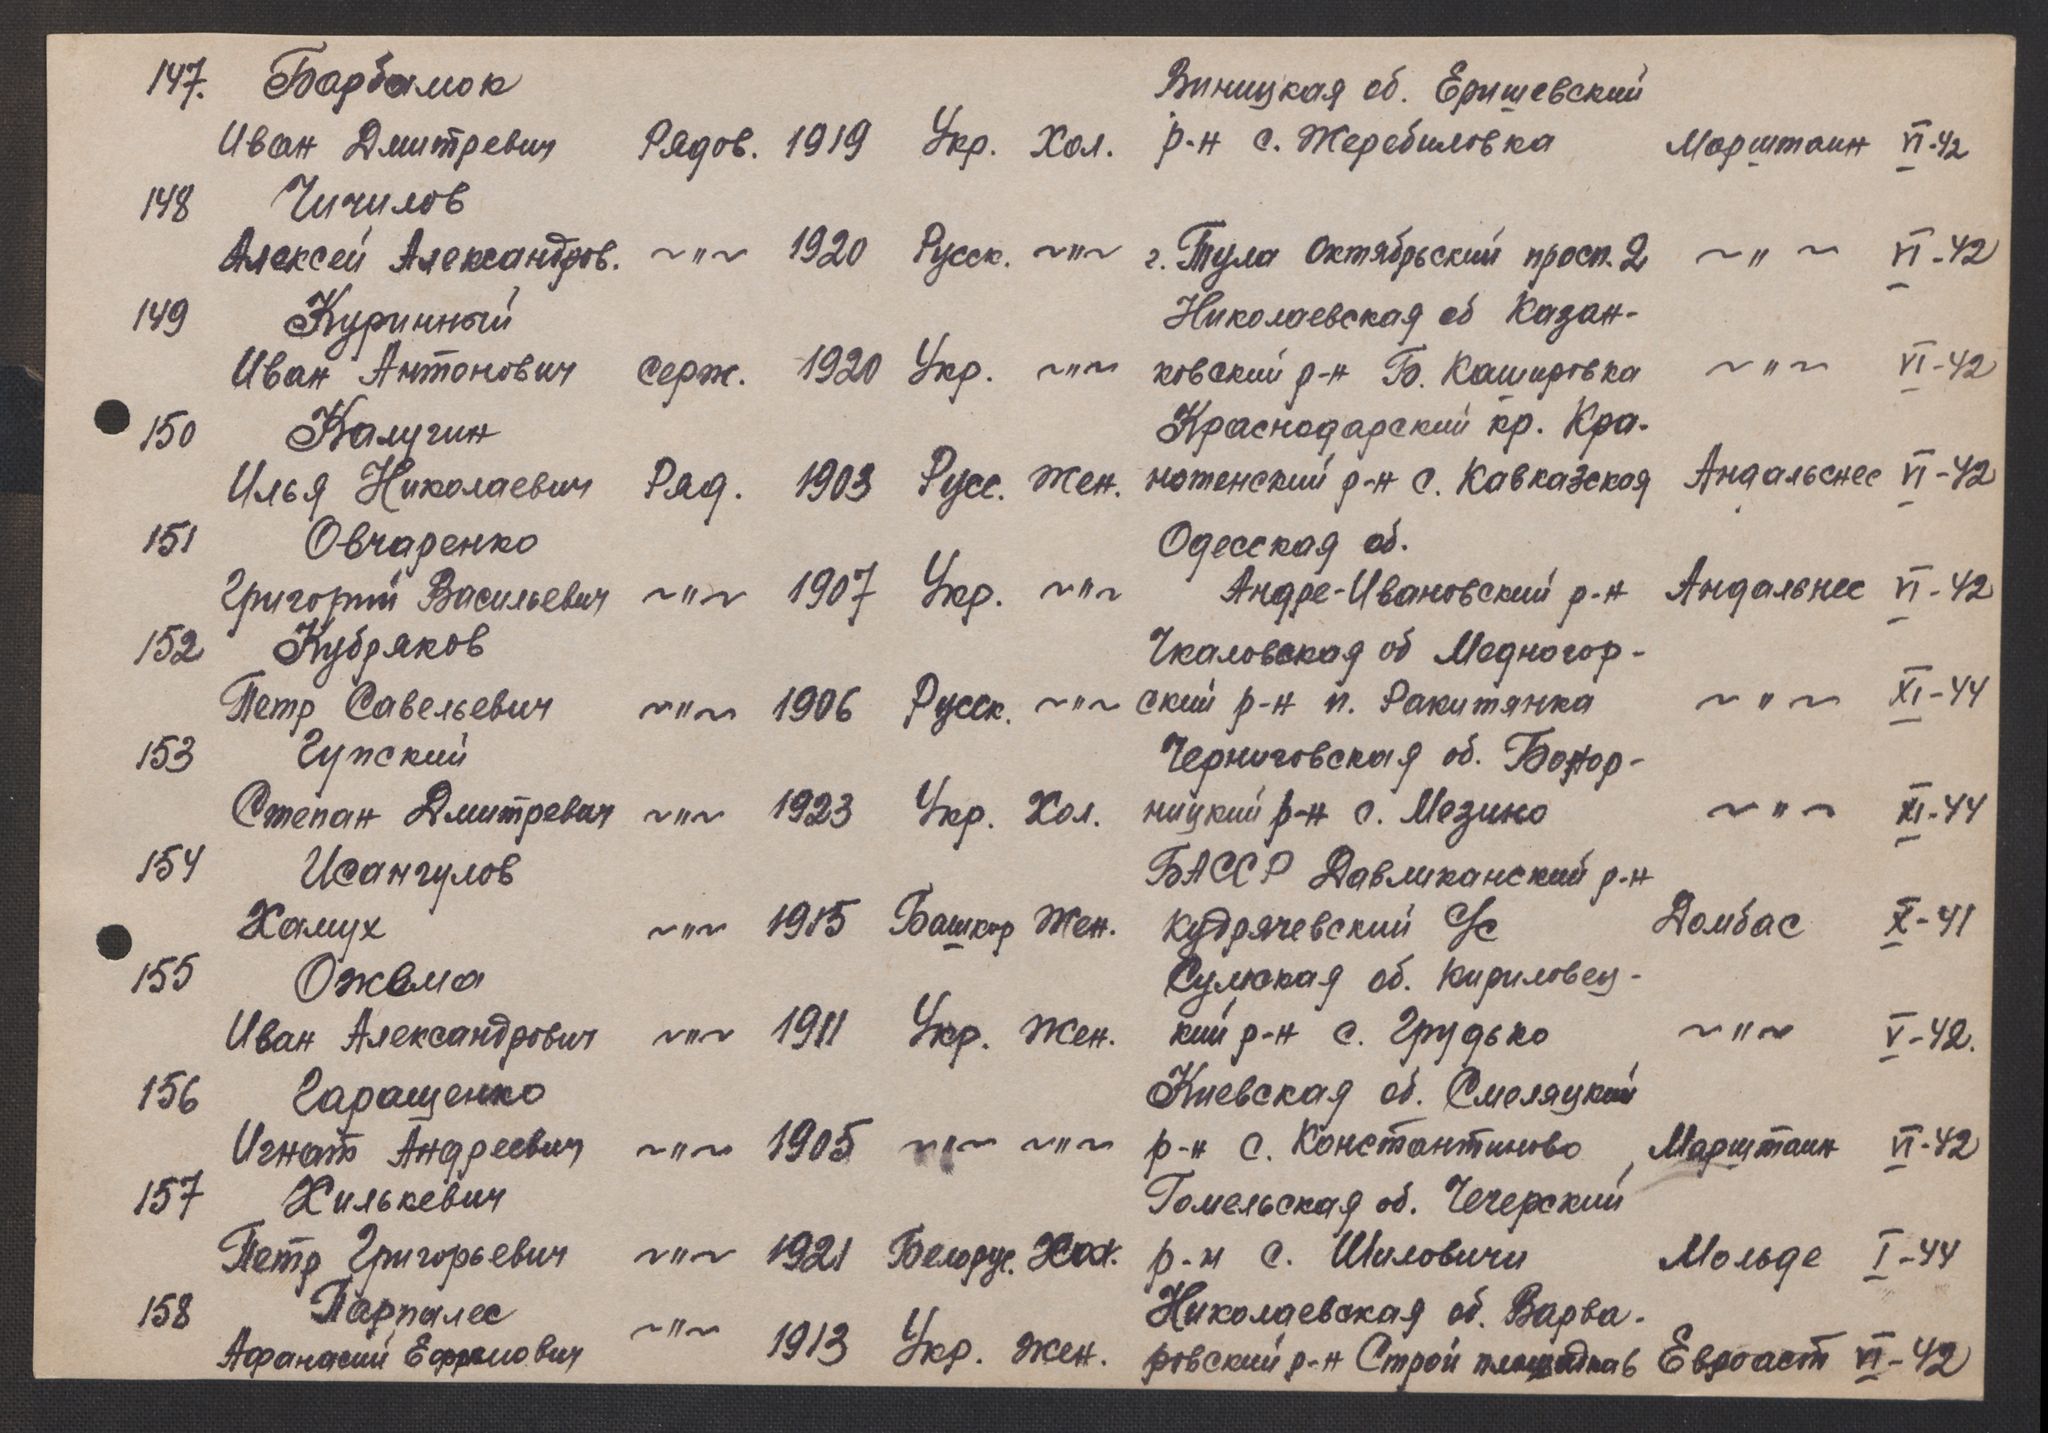 147. Барбамок Виницкая об. Еришевский
Иван Дмитревич Рядов. 1919 Укр. Хол. р-н с. Жеребиловка Морштаин VI-42
148 Чичилов
Алексей Александров. ~"~ 1920 Русск. ~"~ г. Тула Октябрьский просп. 2 ~"~ VI-42
149 Куринный Николаевская об Казан-
Иван Антонович серж. 1920 Укр. ~"~ ковский р-н Б. Кашировка ~"~ VI-42
150 Калугин Краснодарский кр. Кра-
Илья Николаевич Ряд. 1903 Русс. Жен. нотенский р-н с. Кавказская Андальснес VI-42
151 Овчаренко Одесская об.
Григорий Васильевич ~"~ 1907 Укр. ~"~ Андре-Ивановский р-н Андальнес VI-42
152 Кубряков Чкаловская об Медногор-
Петр Савельевич ~"~ 1906 Русск. ~"~ ский р-н п. Ракитянка ~"~ XI-44
153 Гупский Черниговская об.
Степан Дмитревич ~"~ 1923 Укр. Хол. ницкий р-н с. Мезино ~"~ XI-44
154 Исангулов БАССР Давликанский р-н
Хамух ~"~ 1915 Башкир Жен. Кудрячевский с/с Домбас X-41
155 Ожема Сумская об. Кириловец-
Иван Александрович ~"~ 1911 Укр. Жен. кий р-н с. Грудько ~"~ V-42.
156 Гаращенко Киевская об. Смеляцкий
Игнат Андреевич ~"~ 1905 ~"~ ~"~ р-н с. Константиново Марштаин VI-42
157 Хилькевич Гомельская об. Чечерский
Петр Григорьевич ~"~ 1921 Белорус. Хол. р-н с. Шиловичи Мольде I-44
158 Парпалес Николаевская об. Варва-
Афанасий Ефрмович ~"~ 1913 Укр. Жен. ровский р-н Строй площадка 6 VI-42